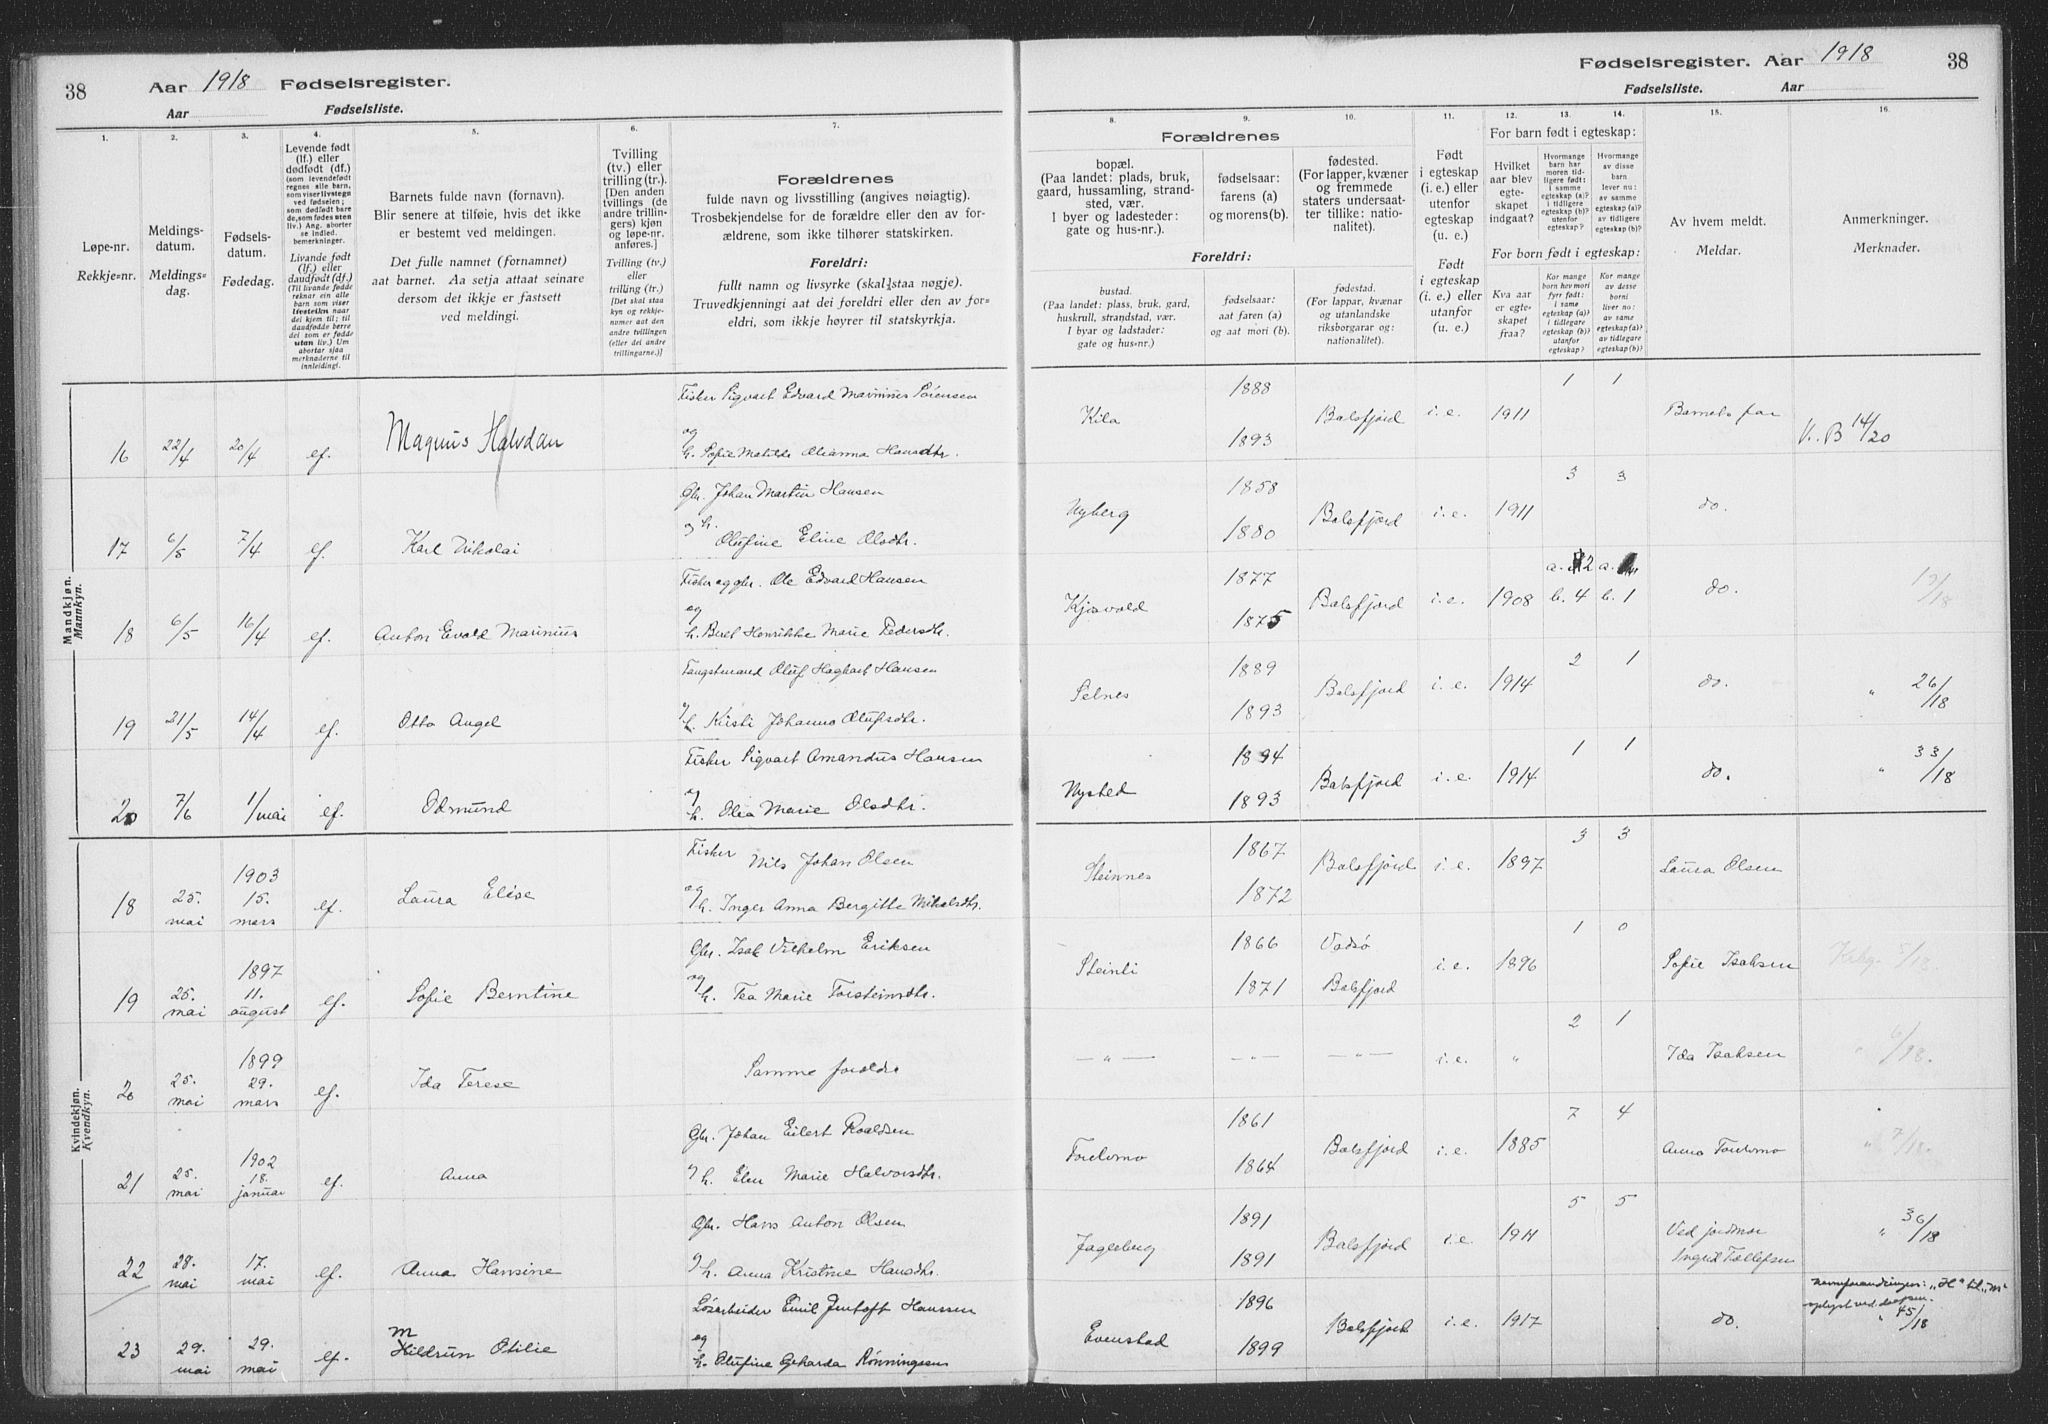 38 Aar 1918 Fødselsregister.
Aar Fødselsliste.
Fødselsregister. Aar 1918 38
Fødselsliste. Aar
1. 2. 3. 4. 5. 6. 7.
8. 9. 10. 11. 12. 13. 14. 15. 16.
Løpe-nr.
Rekkje=nr.
Meldings-
datum.
Meldings=
dag.
Fødsels-
datum.
Fødedag.
Levende født
(lf.) eller
dødfødt (df.)
(som levendefødt
regnes alle barn,
som viser livstegn
ved fødselen;
som dødfødt bare
de, som fødes uten
liv.) Ang. aborter
se indled.
bemerkninger.
Livande født
(lf.) eller
daudfødt (df.)
(Til livande fødde
reknar ein alle
barn som viser
livsteikn naar
dei kjem til; til
daudfødde berre
dei som er fødde
utan liv.) Um
abortar sjaa
merknaderne til
innleidingi.
Barnets fulde navn (fornavn).
Blir senere at tilføie, hvis det ikke
er bestemt ved meldingen.
Det fulle namnet (fornamnet)
aat barnet. Aa setja attaat seinare
dersom det ikkje er fastsett
ved meldingi.
Tvilling
(tv.) eller
trilling (tr.).
[Den anden
tvillings (de
andre trillin-
gers) kjøn
og løpe-nr.
anføres.]
Tvilling (tv.)
eller
trilling (tr.)
[Det skal staa
kyn og rekkje-
nomer aat den
andre tvillingen
(eller dei andre
trillingarne.)]
Forældrenes
fulde navn og livsstilling (angives nøiagtig).
Trosbekjendelse for de forældre eller den av for-
ældrene, som ikke tilhører statskirken.
Foreldri:
fullt namn og livsyrke (skal staa nøgje).
Truvedkjenningi aat dei foreldri eller den av for=
eldri, som ikkje høyrer til statskyrkja.
Forældrenes
bopæl.
(Paa landet: plads, bruk,
gaard, hussamling, strand-
sted, vær.
I byer og ladesteder:
gate og hus-nr.).
fødselsaar:
farens (a)
og morens(b).
fødested.
(For lapper, kvæner
og fremmede
staters undersaat-
ter tillike: natio-
nalitet).
Foreldri:
bustad.
(Paa landet: plass, bruk, gard,
huskrull, strandstad, vær.
I byar og ladstader:
gate og hus=nr.)
fødselsaar:
aat faren (a)
og aat mori (b).
fødestad.
(For lappar, kvænar
og utanlandske
riksborgarar og:
nationalitet).
Født
i egteskap
(i. e.) eller
utenfor
egteskap
(u. e.)
Født
i egteskap
(i. e.) eller
utanfor
(u. e.)
For barn født i egteskap:
Hvilket
aar blev
egte-
skapet
indgaat?
Hvormange
barn har
moren tid-
ligere født:
i samme
egteskap (a)?
i tidligere
egteskap (b)?
utenfor
egteskap?
Hvormange
av disse
barn
lever nu:
av samme
egteskap (a)?
av tidligere
egteskap (b)?
For born født i egteskap:
Kva aar
er egte-
skapet
fraa?
Kor mange
born hev mori
fyrr født:
i same
egteskap (a)?
i tidlegare
egteskap (b)?
utanfor
egteskap?
Kor mange
av desse
borni
liver no:
av same
egteskap (a)?
av tidlegare
egteskap (b)?
Av hvem meldt.
Meldar.
Anmerkninger.
Merknader.
Mandkjøn.
Mannkyn.
16 22/4 20/4 lf. Magnus Halvdan Fisker Sigvart Edvard Marinius Sørensen
og
h. Sofie Matilde Oleanna Hansdtr.
Kila 1888 1893 Balsfjord i. e. 1911 1 1 Barnets far V. B 14/20
17 6/5 7/4 lf. Karl Nikolai Gbr. Johan Martin Hansen
og h. Olufine Eline Olsdtr.
Nyberg 1858 1880 Balsfjord i. e. 1911 3 3 do.
18 6/5 16/4 lf. Anton Evald Marinius Fisker og gbr. Ole Edvard Hansen
og
h. Beret Henrikke Marie Pedersdtr.
Kjosvold 1877 1875 Balsfjord i. e. 1908 a. 2 b. 4 a. b. 1 do. 19/18
19 21/5 14/4 lf. Otto Angel Fangstmand Oluf Hagbart Hansen
og h. Kirsti Johanna Olufsdtr.
Selnes 1889 1893 Balsfjord i. e. 1914 2 1 do. " 26/18
20 7/6 1/mai lf. Odmund Fisker Sigvart Amandus Hansen
og
h. Olea Marie Olsdtr.
Nysted 1894 1893 Balsfjord i. e. 1914 1 1 do. " 33/18
Kvindekjøn.
Kvendkyn.
18 25. mai 1903 15. mars lf. Laura Elise Fisker Nils Johan Olsen
og h. Inger Anna Bergitte Nikolsdtr.
Steinnes 1867 1872 Balsfjord i. e. 1897 3 3 Laura Olsen
19 25. mai 1897 11. august lf. Sofie Berntine Gbr. Isak Vilhelm Eriksen
og h. Tea Marie Torsteinsdtr.
Steinli 1866 1871 Vadsø Balsfjord i. e. 1896 1 0 Sofie Isaksen 5/18.
20 25. mai 1899 29. mars lf. Ida Terese Samme foreldre
— " — — " — — " — i. e. " 2 1 Ida Isaksen " 6/18.
21 25. mai 1902 18. januar lf. Anna Gbr. Johan Eilert Roaldsen
og h. Elen Marie Halvorsdtr.
Foredmo 1861 1864 Balsfjord i. e. 1885 7 4 Anna " 7/18.
22 28. mai 17. mai lf. Anna Hansine Gbr. Hans Anton Olsen
og h. Anna Kristine Hansdtr.
Fagleberg 1891 1891 Balsfjord i. e. 1911 5 5 Ved jordmor
Ingrid Tollefsen " 36/18
23 29. mai 29. mai lf. M Hildrun Otilie Løsarbeider Emil Jentoft Hanssen
og
h. Olufine Geharda Rønningsen
Evenstad 1896 1899 Balsfjord i. e. 1917 do. Navneforandringen: "H" til "M"
oplyst ved daapen.
" 45/18